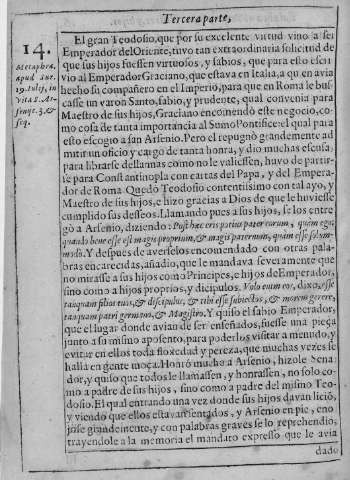 Tercera parte,
14.
Metaphra.
apud Sur.
19. Iulij, in
vita S. Ar-
senij c. 3. &
seq.
El gran Teodosio, que por su excelente virtud vino a ser
Emperador del Oriente, tuvo tan extraordinaria solicitud de
que sus hijos fuessen virtuosos, y sabios, que para esto escri-
vio al Emperador Graciano, que estava en Italia, a quien avia
hecho su compañero en el Imperio, para que en Roma le bus-
casse un varon Santo, sabio, y prudente, qual convenia para
Maestro de sus hijos, Graciano encomendò este negocio, co-
mo cosa de tanta importancia al Sumo Pontifice: el qual pa-
ra esto escogio a san Arsenio. Pero el repugnò grandemente ad
mitir un oficio y cargo de tanta honra, y dio muchas escusas,
para librarse dellas: mas como no le valiessen, huvo de partir-
se para Constantinopla con cartas del Papa, y del Empera-
dor de Roma. Quedò Teodosio contentissimo con tal ayo, y
Maestro de sus hijos, e hizo gracias a Dios de que le huviesse
cumplido sus desseos. Llamando pues a sus hijos, se los entre
gò a Arsenio, diziendo: Post hac eris potius pater eorum, quàm ego,
quando bene esse est magis proprium, & magis paternum, quàm esse solum-
modo. Y despues de averselos encomendado con otras pala-
bras encarecidas, añadio, que le mandava severamente que
no mirasse a sus hijos como Principes, e hijos de Emperador,
sino como a hijos proprios, y dicipulos. Volo enim eos, dixo, esse
tanquam filios tuos, & discipulos, & tibi esse subiectos, & morem gerere,
tanquam patri germano, & Magistro. Y quiso el sabio Emperador,
que el lugar donde avian de ser enseñados, fuesse una pieça
junto a su mismo aposento, para poderlos visitar a menudo, y
evitar en ellos toda floxedad y pereza, que muchas vezes se
halla en gente moça. Honrò mucho a Arsenio, hizole Sena
dor, y quiso que todos le llamassen, y honrassen, no solo co-
mo a padre de sus hijos, sino como a padre del mismo Teo-
dosio. El qual entrando una vez donde sus hijos davan liciò,
y viendo que ellos estavan sentados, y Arsenio en pie, eno
jòse grandemente, y con palabras graves se lo reprehendio,
trayendole a la memoria el mandato expresso que le avia
dado